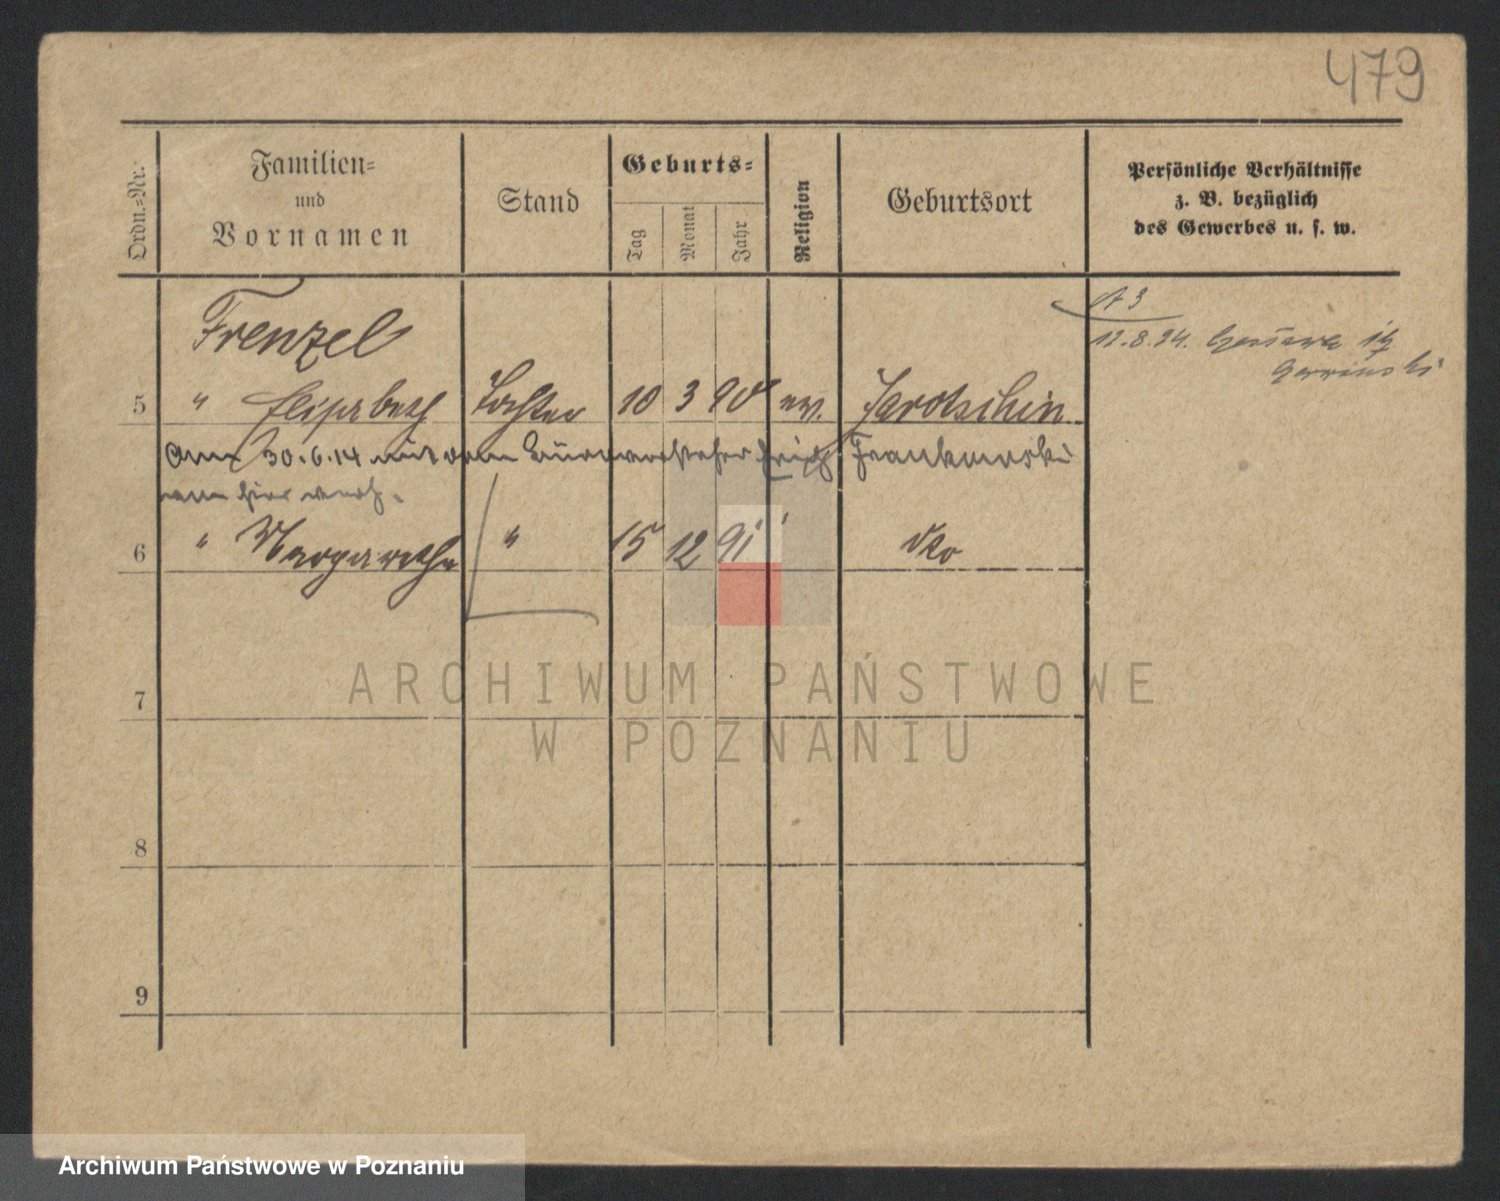 479
Ordn.-Nr.
Familien-
und
Vornamen
Stand
Geburts-
Tag
Monat
Jahr
Religion
Geburtsort
Persönliche Verhältnisse
z. B. bezüglich
des Gewerbes u. s. w.
Frenzel
5 " Elisabeth Tochter 10 3 90 ev. Jarotschin
Am 30.6.14 mit dem Erich Frankowski
hier verh.
6 " Margarethe " 15 12 91 dto
12.8.94.
7
8
9
ARCHIWUM PAŃSTWOWE
W POZNANIU
Archiwum Państwowe w Poznaniu